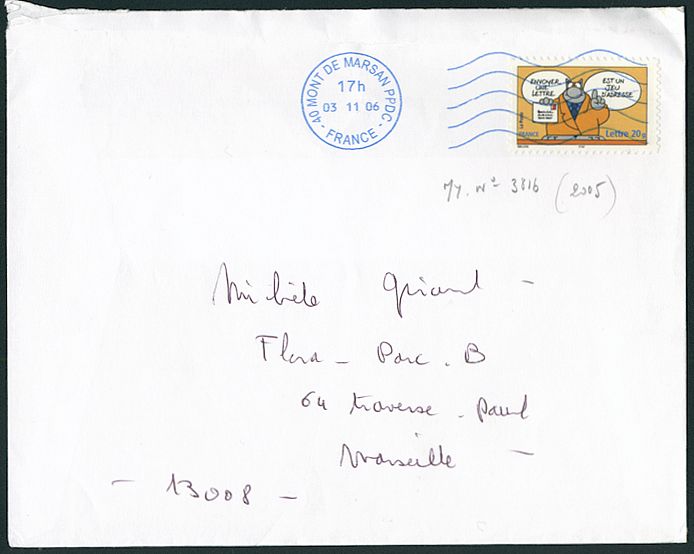 40 MONT DE MARSAN PPDC
17h
03 11 06
- FRANCE -
ENVOYER
UNE
LETTRE
EST UN
JEU
D'ADRESSE
La Poste
FRANCE
Lettre 20g
My. N° 3816 (2005)
Michèle Giraud -
Flora - Parc . B
64 traverse . Paul
Marseille -
- 13008 -